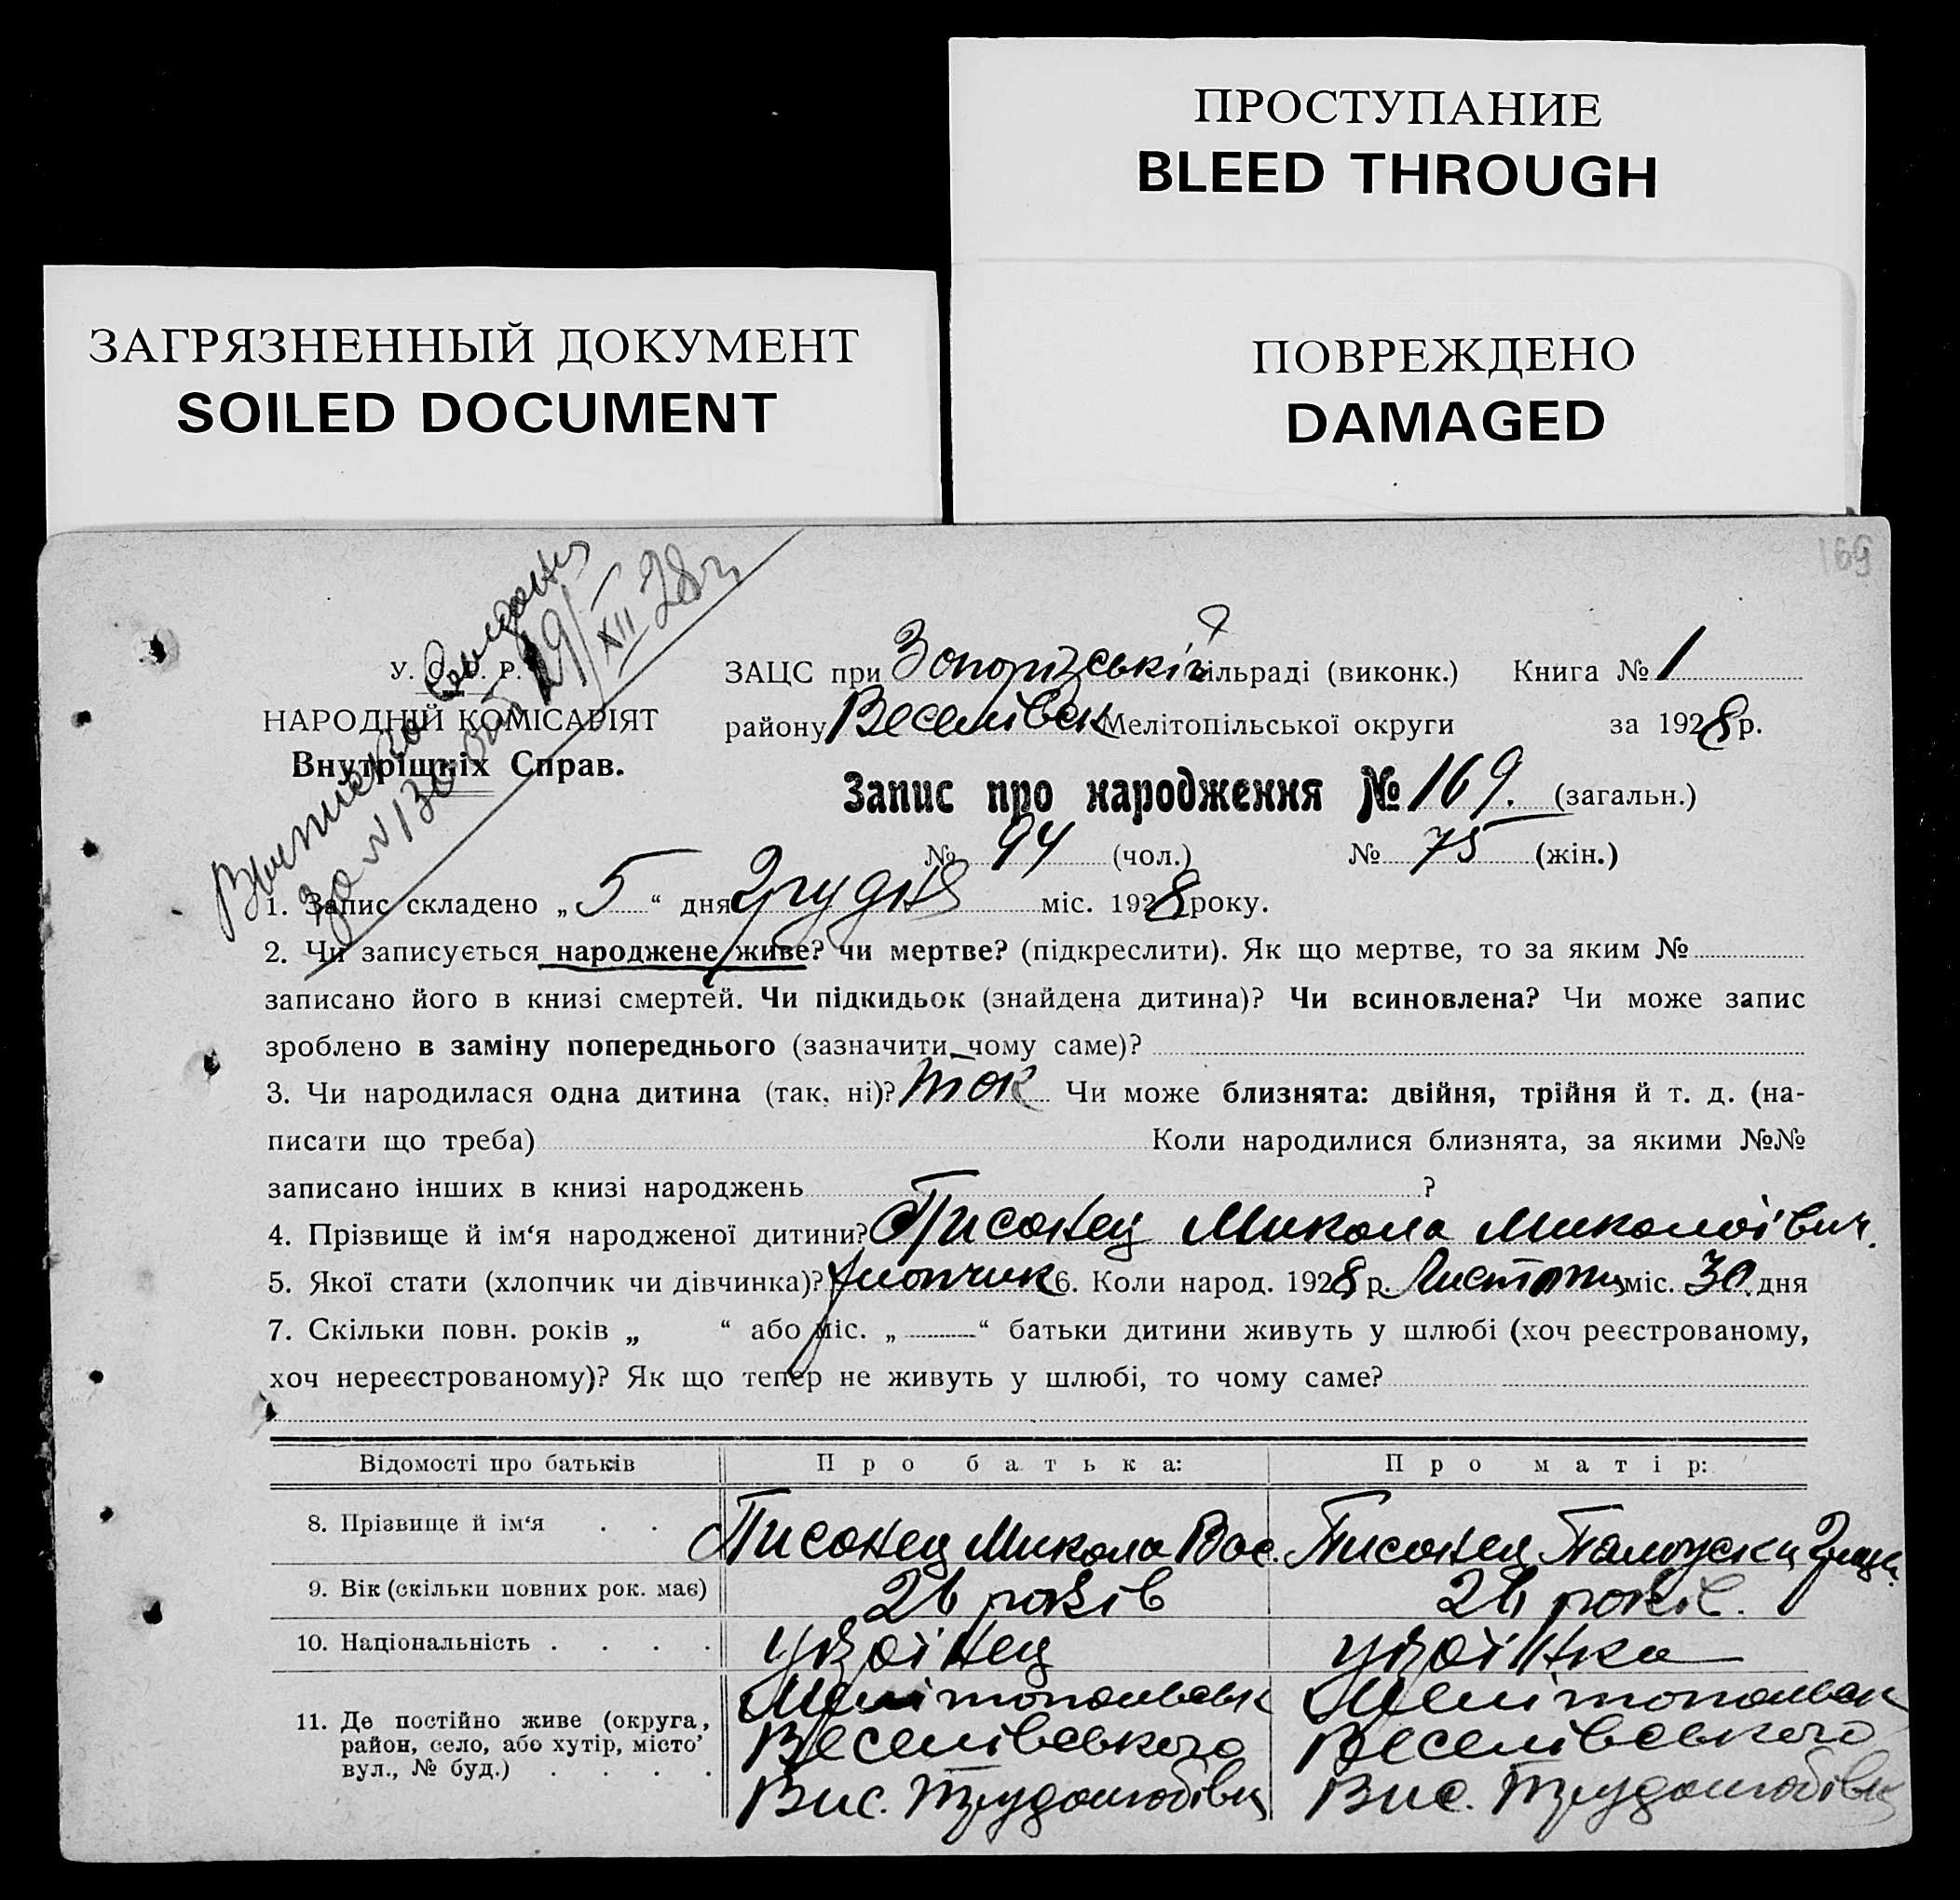 ПРОСТУПАНИЕ
BLEED THROUGH
ЗАГРЯЗНЕННЫЙ ДОКУМЕНТ
SOILED DOCUMENT
ПОВРЕЖДЕНО
DAMAGED
169
У. С. С. Р.
НАРОДНІЙ КОМІСАРІЯТ
Внутрішніх Справ.
за №130 від 19/XII 28
ЗАЦС при Запорізській сільраді (виконк.) Книга № 1
району Веселівськ Мелітопільської округи за 1928 р.
Запис про народження № 169. (загальн.)
№ 94 (чол.) № 75 (жін.)
1. Запис складено „ 5 “ дня Грудня міс. 1928 року.
2. Чи записується народжене живе? чи мертве? (підкреслити). Як що мертве, то за яким №
записано його в книзі смертей. Чи підкидьок (знайдена дитина)? Чи всиновлена? Чи може запис
зроблено в заміну попереднього (зазначити чому саме)?
3. Чи народилася одна дитина (так, ні)? так Чи може близнята: двійня, трійня й т. д. (на-
писати що треба) Коли народилися близнята, за якими №№
записано інших в книзі народжень ?
4. Прізвище й ім‘я народженої дитини? Писанец Микола Миколаівич.
5. Якої стати (хлопчик чи дівчинка)? Хлопчик 6. Коли народ. 1928 р. міс. 30 дня
7. Скільки повн. років „ “ або міс. „ “ батьки дитини живуть у шлюбі (хоч реєстрованому,
хоч нереєстрованому)? Як що тепер не живуть у шлюбі, то чому саме?
Відомості про батьків Про батька: Про матір:
8. Прізвище й ім‘я Писанец Микола Вас. Писанец
9. Вік (скільки повних рок. має) 26 років 26 років.
10. Національність украінец украінка
11. Де постійно живе (округа, район, село, або хутір, місто’ вул., № буд.)
Мелітопольськ Мелітопольськ
Веселівського Веселівського
Вис. Трудолюбівц Вис. Трудолюбівц